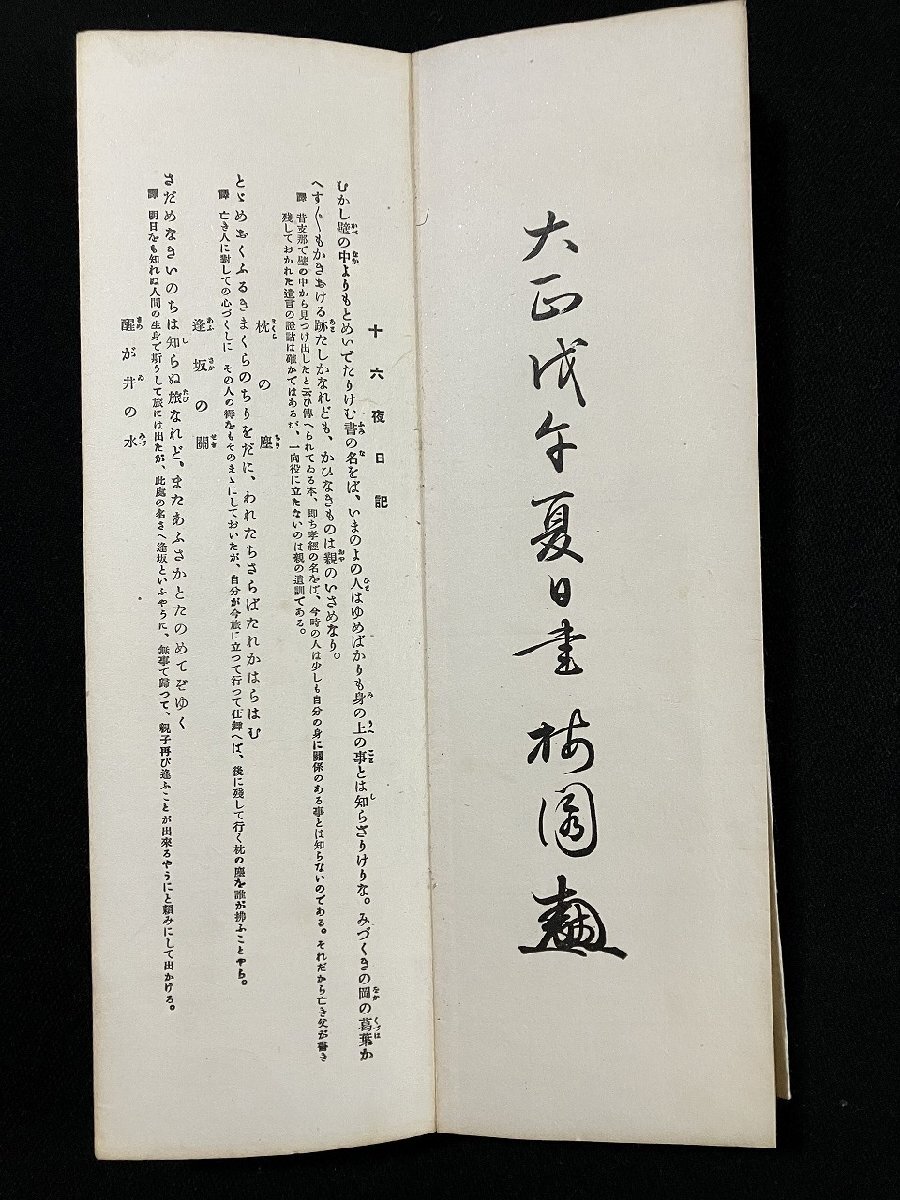 大正戊午夏日書 梅園
十六夜日記
むかし壁の中よりもとめいでたりけむ書の名をば、いまのよの人はゆめばかりも身の上の事とは知らざりけりな。みづくきの岡の葛葉か
へす〴〵もかきおける跡たしかなれども、かひなきものは親のいさめなり。
譯 昔支那で壁の中から見つけ出したと云ひ傳へられてゐる本、即ち孝經の名をば、今時の人は少しも自分の身に關係のある事とは知らないのである。それだから亡き父が書き
殘しておかれた遺言の證詁は確かではあるが、一向役に立たないのは親の遺訓である。
枕の塵
とゞめおくふるきまくらのちりをだに、われたちさらばたれかはらはむ
譯 亡き人に對しての心づくしに その人の得をもそのまゝにしておいたが、自分が今旅に立つて行つて仕舞へば、後に殘して行く枕の塵を誰が拂ふことやら。
逢坂の關
さだめなきいのちは知らぬ旅なれど、またあふさかとたのめてぞゆく
譯 明日をも知れぬ人間の生身で斯うして旅には出たが、此處の名さへ逢坂といふやうに、無事で歸つて、親子再び逢ふことが出來るやうにと頼みにして出かける。
醒が井の水